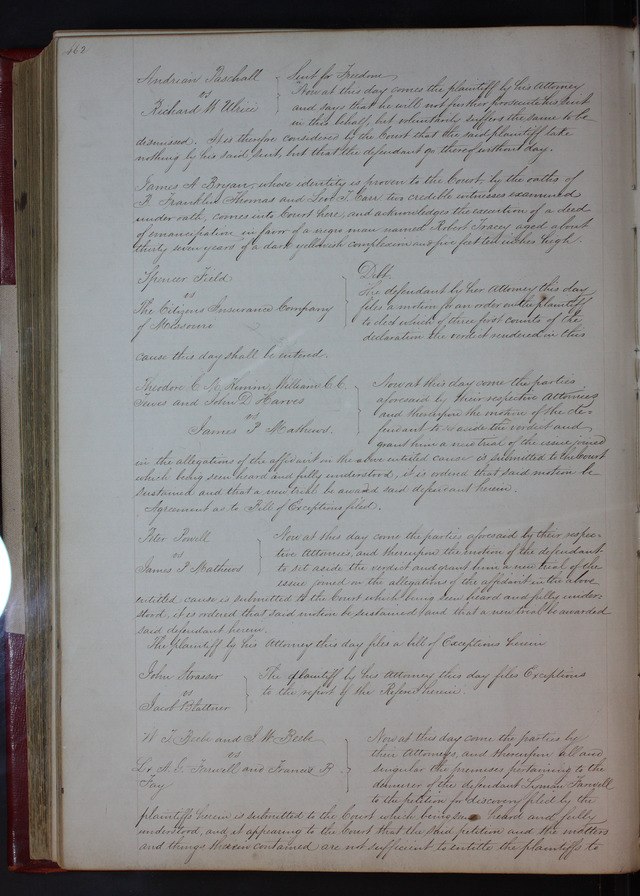 662
Andrew Paschall } Suit for Freedom
vs } Now at this day comes the plaintiff by his Attorney
Richard W Ulrici } and says that he will not further prosecute his Suit
in this behalf, but voluntarily suffers the same to be
dismissed. It is therefore considered by the Court that the said plaintiff take
nothing by his said Suit, but that the defendant go thereof without day.
James A Bryan, whose identity is proven to the Court, by the oaths of
R Franklin Thomas and T. Carr two credible witnesses examined
under oath, comes into Court here, and acknowledges the execution of a deed
of emancipation in favor of a negro man named Robert aged about
thirty seven years of a dark yellowish complexion and five feet ten inches high.
Spencer Field } Debt.
vs } The defendant by her Attorney this day
The Citizens Insurance Company } files a motion for an order on the plaintiff
of Missouri } to elect which of three first counts of the
declaration the verdict rendered in this
cause this day shall be entered.
Theodore C. William C. C. } Now at this day come the parties
and John D } aforesaid by their respective Attornies
vs } and thereupon the motion of the de-
James P Mathews } fendant to set aside the verdict and
grant him a new trial of the issue joined
in the allegations of the affidavit in the above entitled cause is submitted to the Court
which being seen heard and fully understood, it is ordered that said motion be
sustained and that a new trial be award said defendant herein.
Agreement as to Bill of Exceptions filed.
Peter Powell } Now at this day come the parties aforesaid by their respec-
vs } tive Attornies, and thereupon the motion of the defendant
James P Mathews } to set aside the verdict and grant him a new trial of the
issue joined on the allegations of the affidavit in the above
entitled cause, is submitted to the Court which being seen heard and fully under-
stood, it is ordered that said motion be sustained and that a new trial be awarded
said defendant herein.
The plaintiff by his Attorney this day files a bill of Exceptions herein
John Strasser } The plaintiff by his Attorney this day files Exceptions
vs } to the report of the Referee herein.
Jacob
W T. Beebe and J. W. Beebe } Now at this day come the parties by
vs } their Attorneys, and thereupon all and
A. G. Farwell and Francis B } singular the premises pertaining to the
Fay } demurrer of the defendant Farwell
to the petition for discovery filed by the
plaintiffs herein is submitted to the Court which being seen heard and fully
understood, and it appearing to the Court that the said petition and the matters
and things therein contained are not sufficient to entitle the plaintiffs to